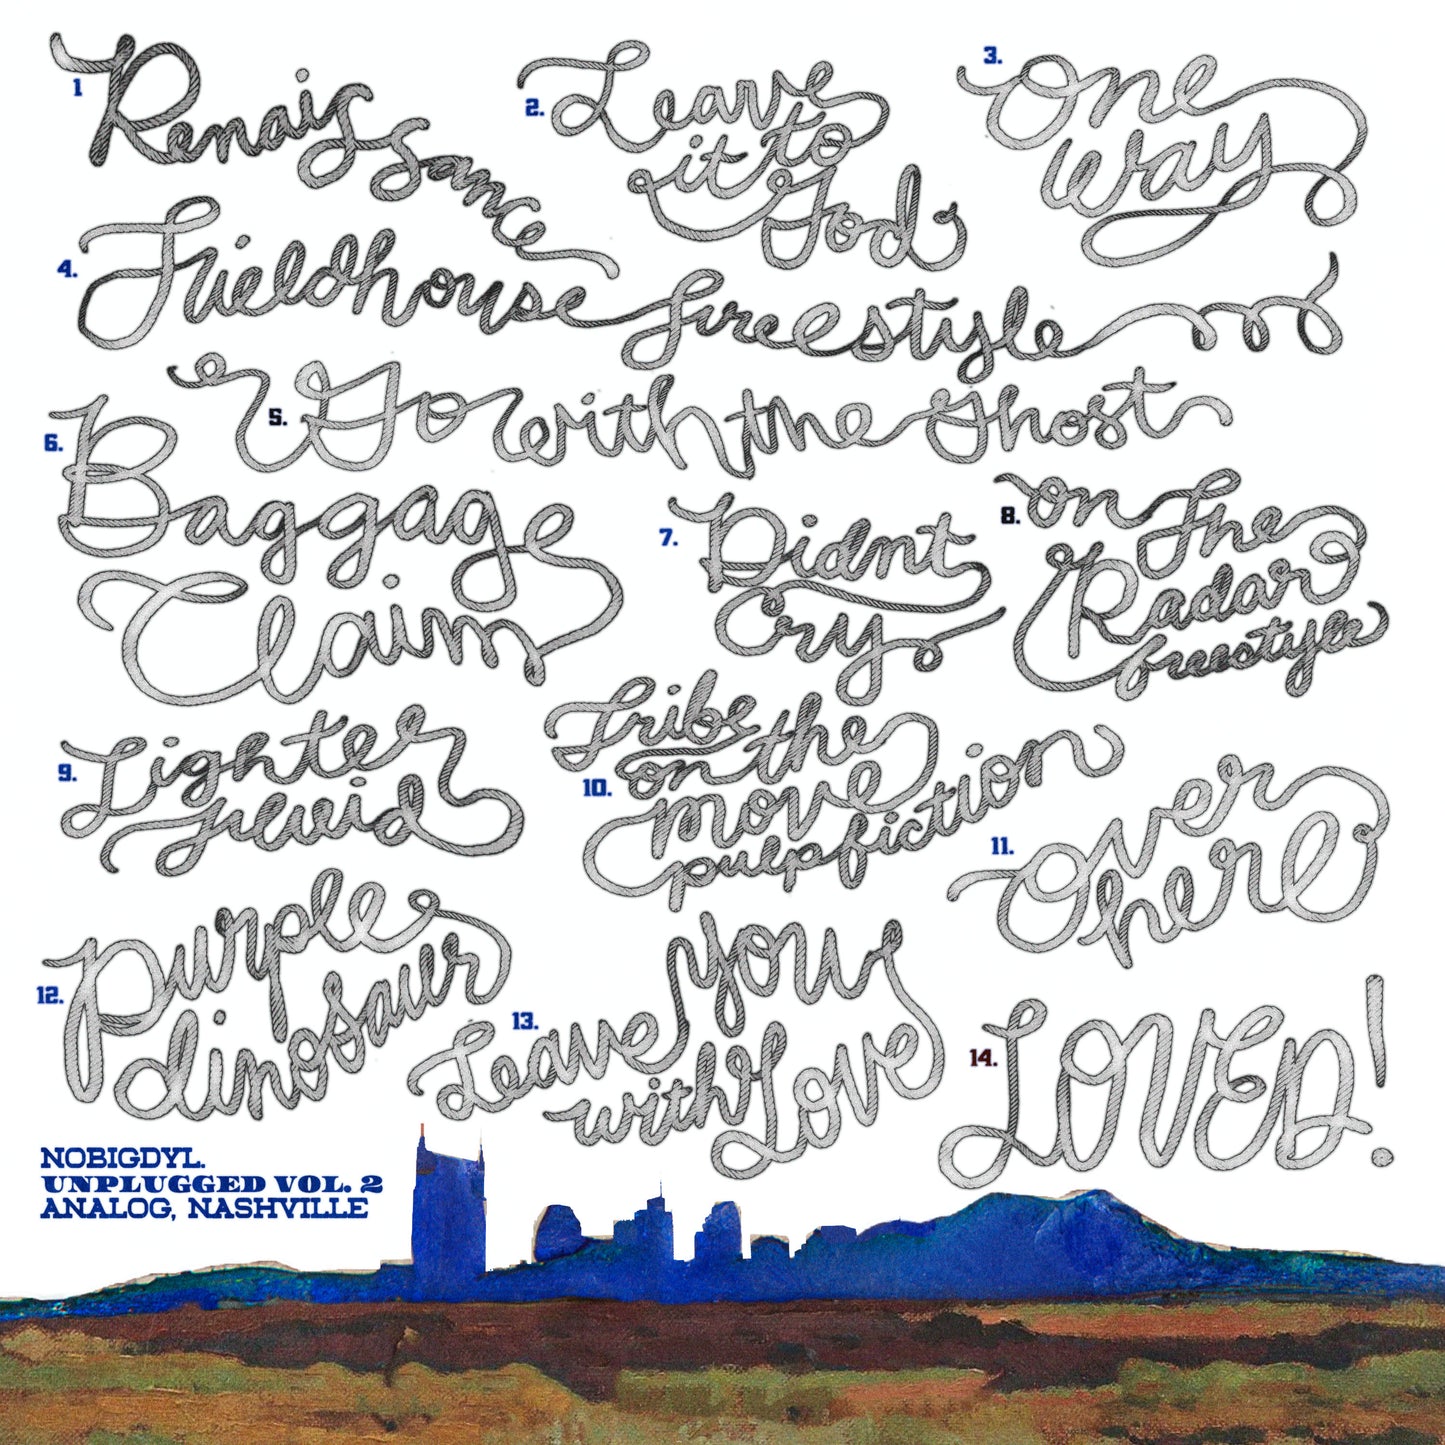 1 Renaissance
2. Leave
it to
God
3. One
Way
4. Fieldhouse freestyle
5. Go with the Ghost
6. Baggage
Claim
7. Didnt
Cry
8. On The
Radar
freestyle
9. Lighter
fluid
10. Tribe
on the
move
pulp fiction
11. Over
here
12. Purple
dinosaur
13. Leave you
with Love
14. LOVED!
NOBIGDYL.
UNPLUGGED VOL. 2
ANALOG, NASHVILLE